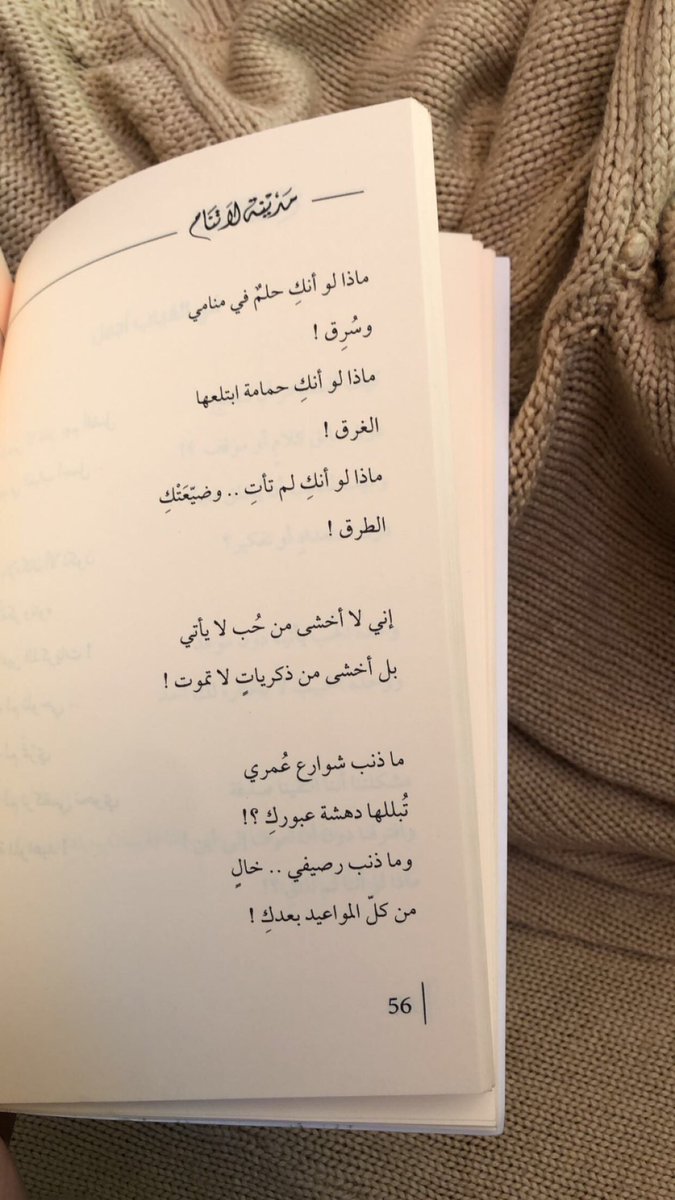 مدينة لا تنام
ماذا لو أنكِ حلمٌ في منامي
وسُرِق !
ماذا لو أنكِ حمامة ابتلعها
الغرق !
ماذا لو أنكِ لم تأتِ .. وضيّعَتْكِ
الطرق !
إني لا أخشى من حُب لا يأتي
بل أخشى من ذكرياتٍ لا تموت !
ما ذنب شوارع عُمري
تُبللها دهشة عبوركِ ؟!
وما ذنب رصيفي .. خالٍ
من كلّ المواعيد بعدكِ !
56